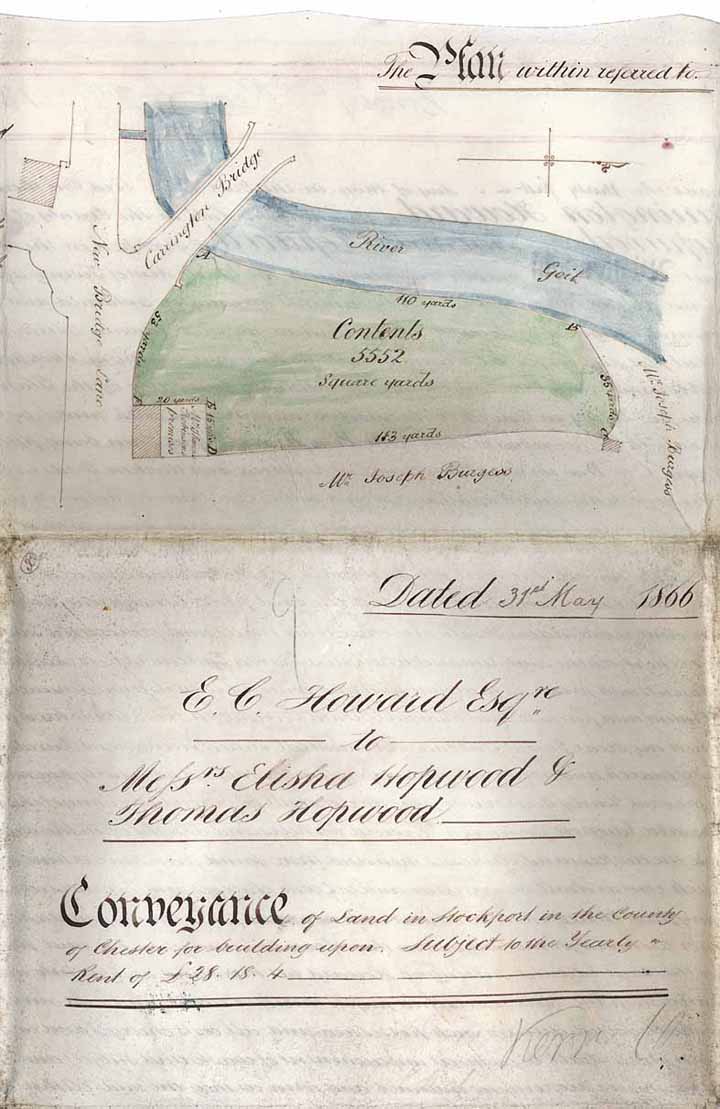 The Plan within referred to.
Carrington Bridge
New Bridge Lane
River Goit
A
110 yards
B
Contents
5552
Square yards
53 yards
35 yards
Mr. Joseph Burgess
F 20 yards E
15 yds D
Premises
C
143 yards
Mr. Joseph Burgess
Dated 31st May 1866
E. C. Howard Esqre
to
Messrs. Elisha Hopwood &
Thomas Hopwood
Conveyance of Land in Stockport in the County
of Chester for building upon. Subject to the Yearly
Rent of £28. 18. 4